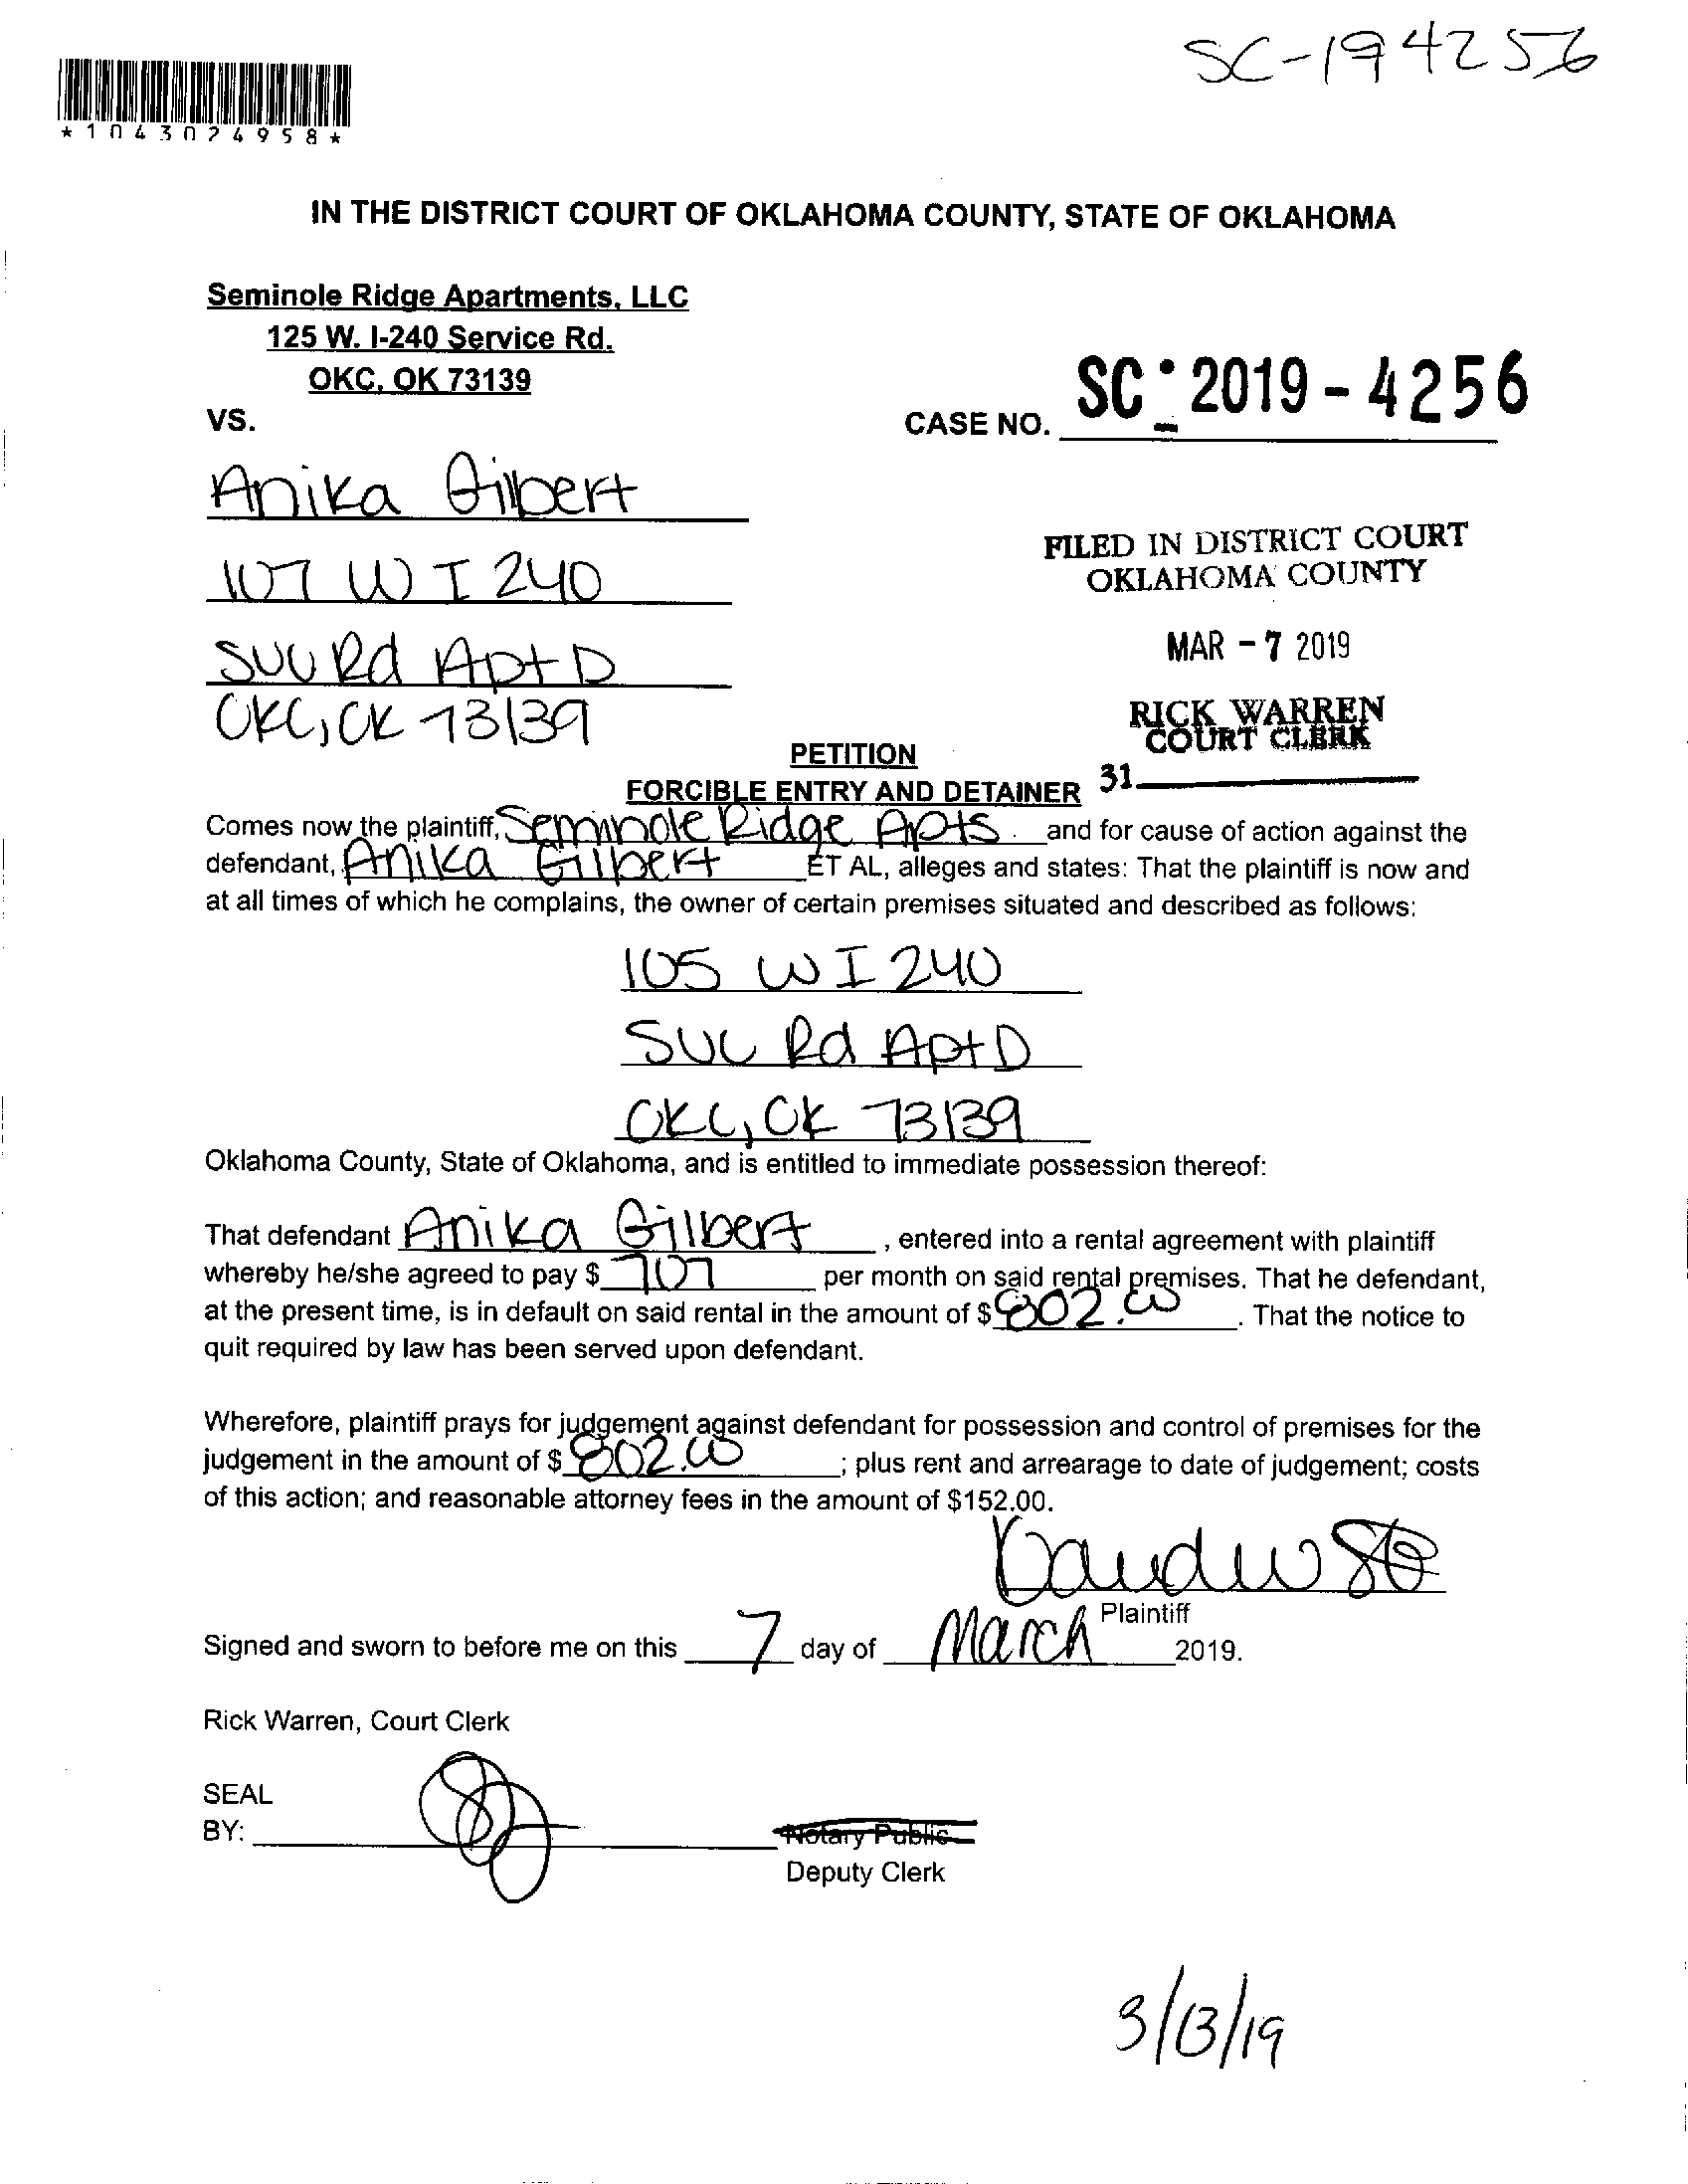 SC-194256
*1043024958*
IN THE DISTRICT COURT OF OKLAHOMA COUNTY, STATE OF OKLAHOMA
Seminole Ridge Apartments, LLC
125 W. I-240 Service Rd.
OKC, OK 73139
VS.
CASE NO. SC-2019-4256
Anika Gilbert
107 W I 240
SVC Rd Apt D
OKC, OK 73139
FILED IN DISTRICT COURT
OKLAHOMA COUNTY
MAR - 7 2019
RICK WARREN
COURT CLERK
31
PETITION
FORCIBLE ENTRY AND DETAINER
Comes now the plaintiff, Seminole Ridge Apts. and for cause of action against the
defendant, Anika Gilbert ET AL, alleges and states: That the plaintiff is now and
at all times of which he complains, the owner of certain premises situated and described as follows:
105 W I 240
SVC Rd Apt D
OKC, OK 73139
Oklahoma County, State of Oklahoma, and is entitled to immediate possession thereof:
That defendant Anika Gilbert, entered into a rental agreement with plaintiff
whereby he/she agreed to pay $ 707 per month on said rental premises. That he defendant,
at the present time, is in default on said rental in the amount of $ 802.00. That the notice to
quit required by law has been served upon defendant.
Wherefore, plaintiff prays for judgement against defendant for possession and control of premises for the
judgement in the amount of $ 802.00; plus rent and arrearage to date of judgement; costs
of this action; and reasonable attorney fees in the amount of $152.00.
Plaintiff
Signed and sworn to before me on this 7 day of March 2019.
Rick Warren, Court Clerk
SEAL
BY:
Notary Public
Deputy Clerk
3/13/19